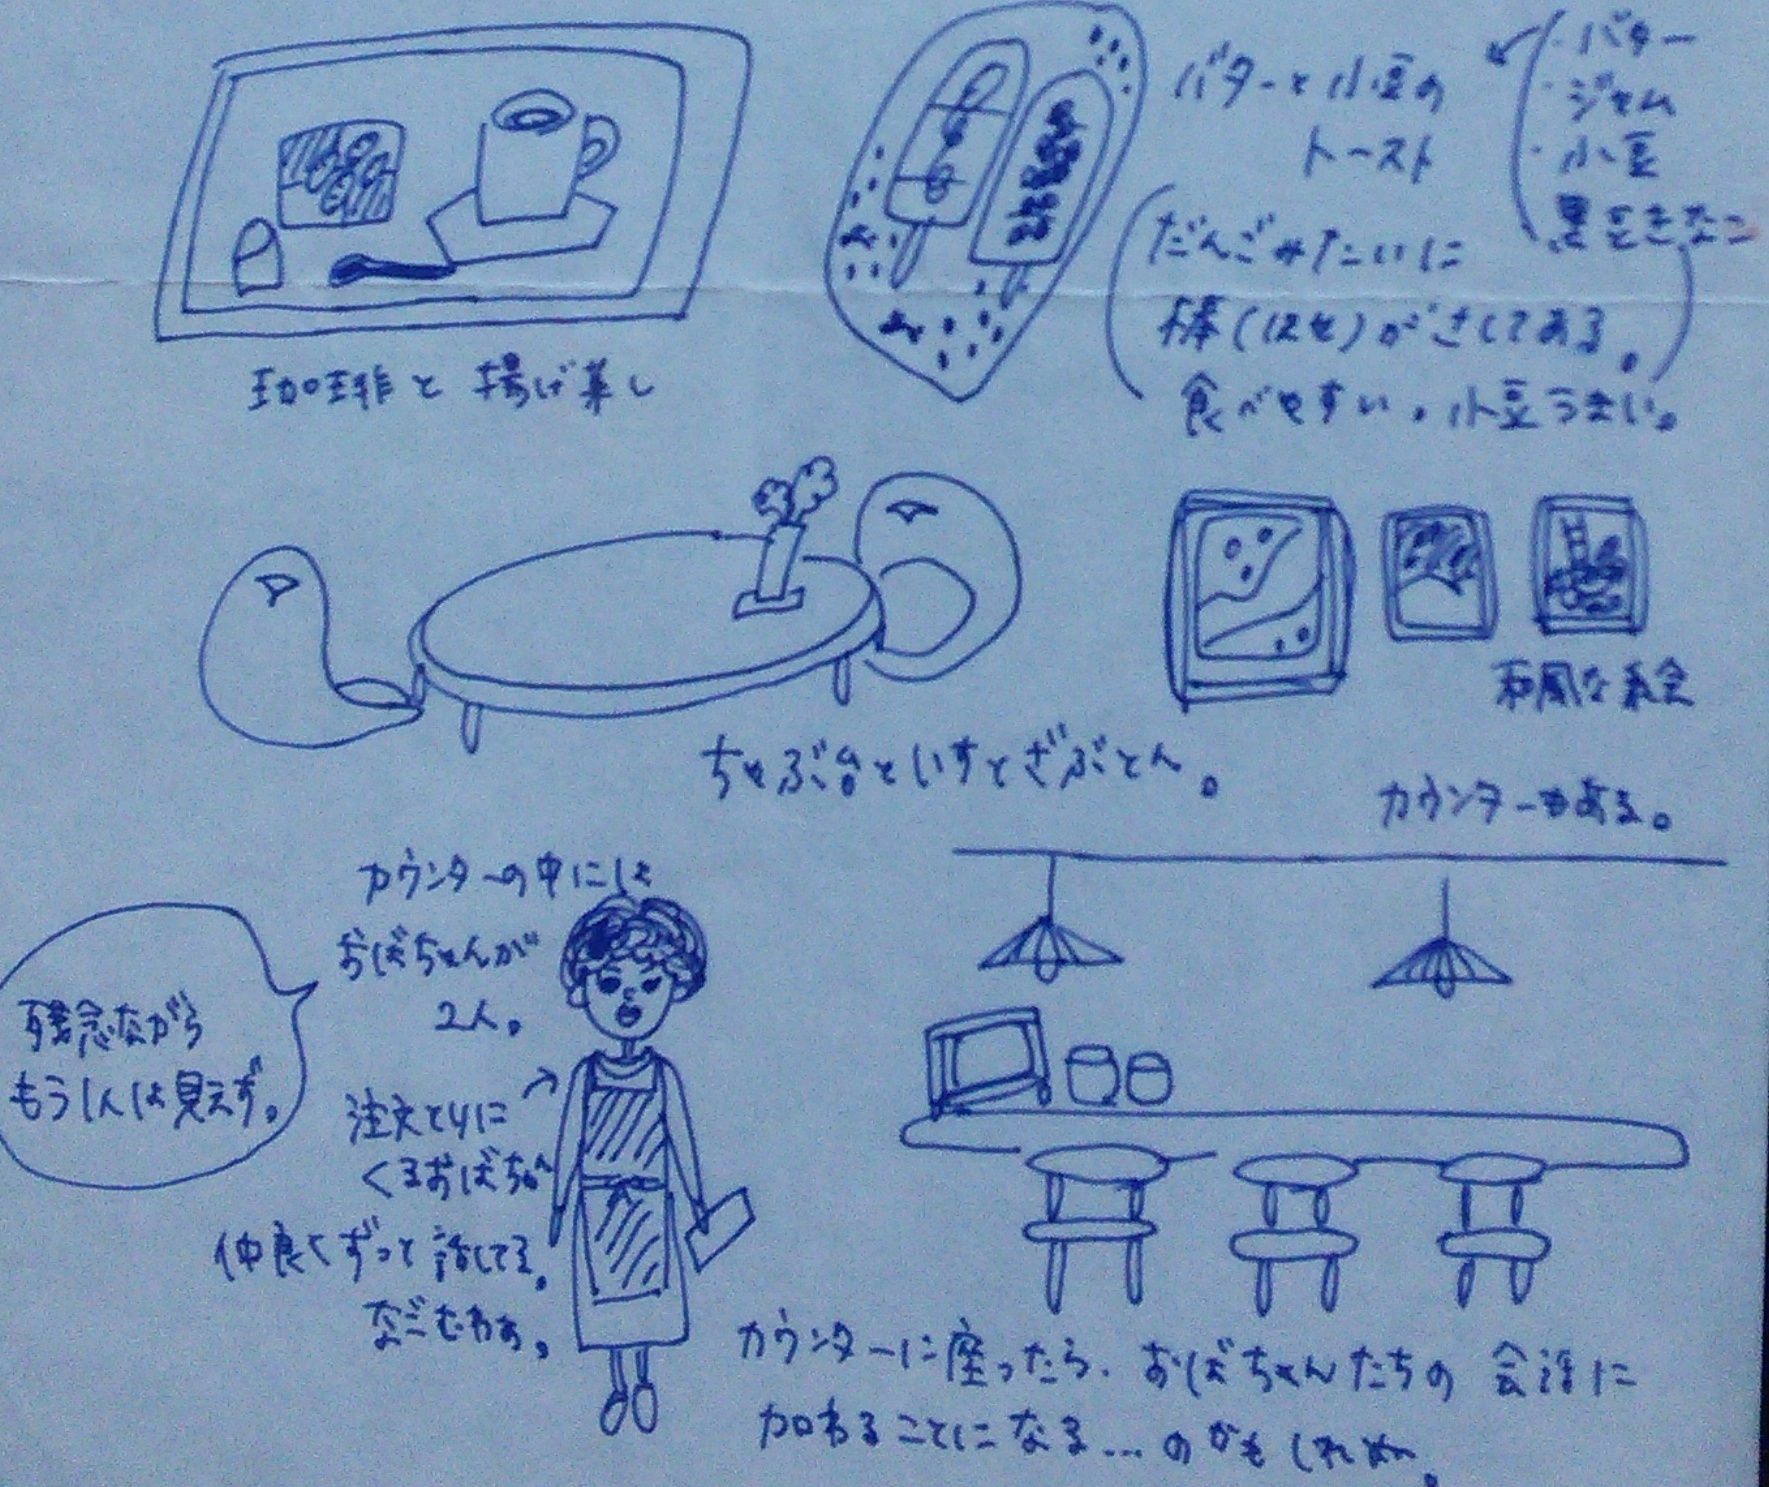 珈琲と揚げ菓し
バターと小豆の
トースト
・バター
・ジャム
・小豆
黒豆きなこ
だんごみたいに
棒(はし)がさしてある。
食べやすい。小豆うまい。
ちゃぶ台といすとざぶとん。
和風な絵
カウンターもある。
カウンターの中には
おばちゃんが
2人。
残念ながら
もう1人は見えず。
注文とりに
くるおばちゃん
仲良くずっと話してる。
なごむわぁ。
カウンターに座ったら、おばちゃんたちの会話に
加わることになる…のかもしれぬ。